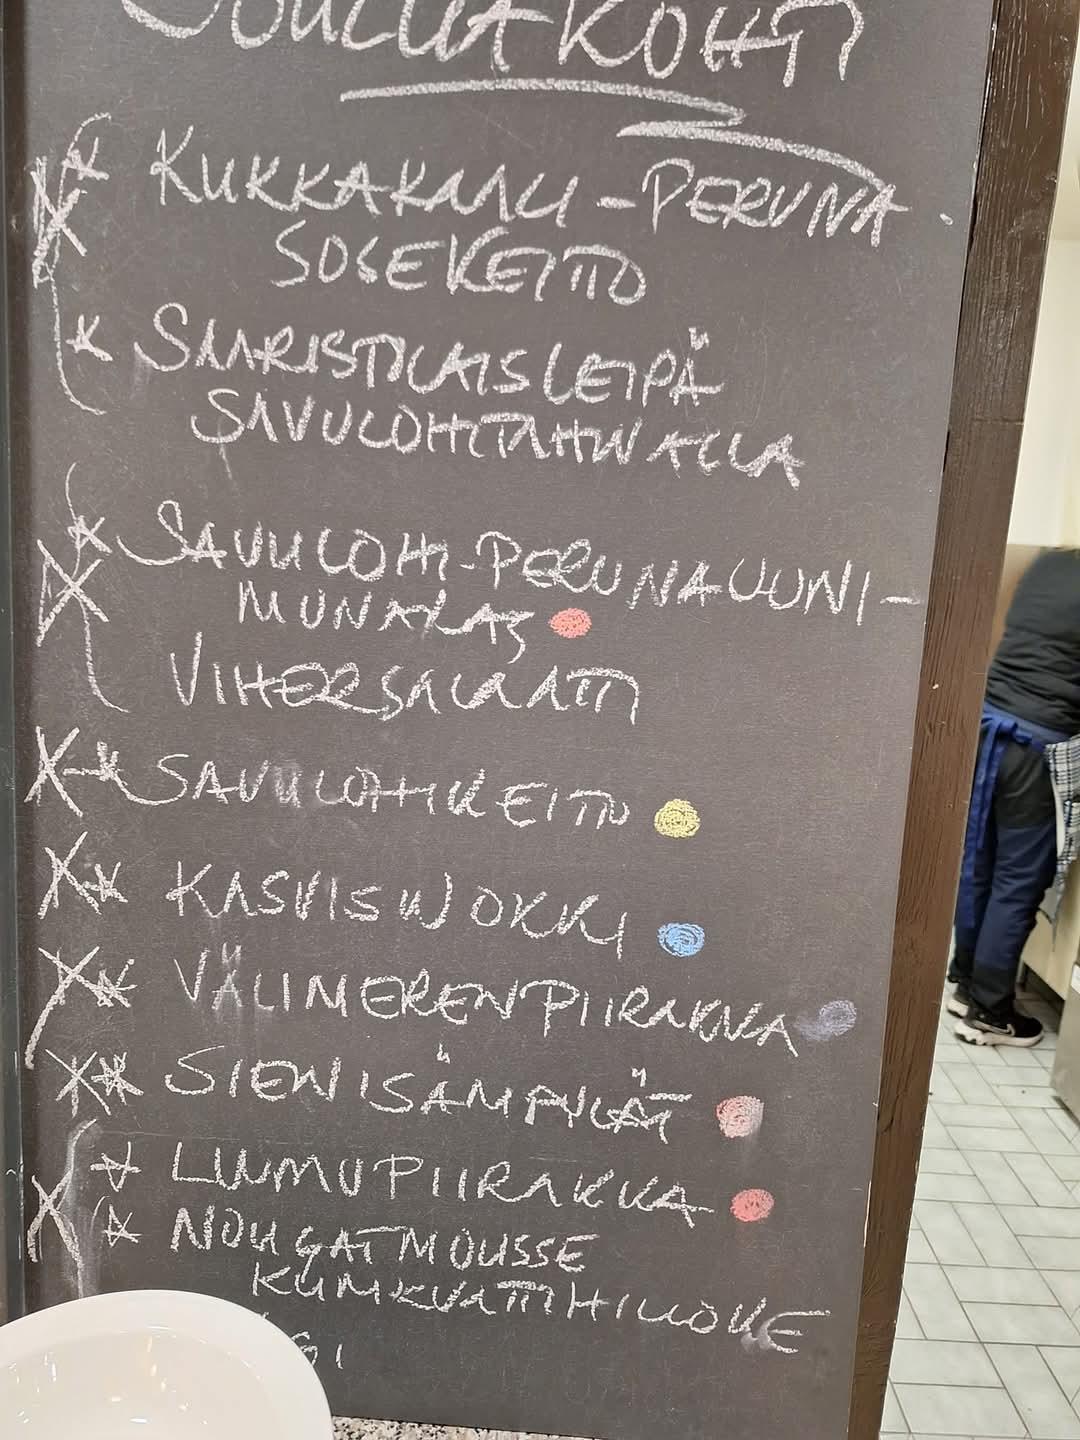 JOULUA KOHTI
KUKKAKAALI-PERUNA-
SOSEKEITTO
SAARISTOLAISLEIPÄ
SAVULOHITAHNALLA
SAVULOHI-PERUNAUUNI-
MUNAKAS
VIHERSALAATTI
SAVULOHIKEITTO
KASVISWOKKI
VÄLIMERENPIIRAKKA
SIENISÄMPYLÄT
LUUMUPIIRAKKA
NOUGATMOUSSE
KUMKVATTIHILLOKE